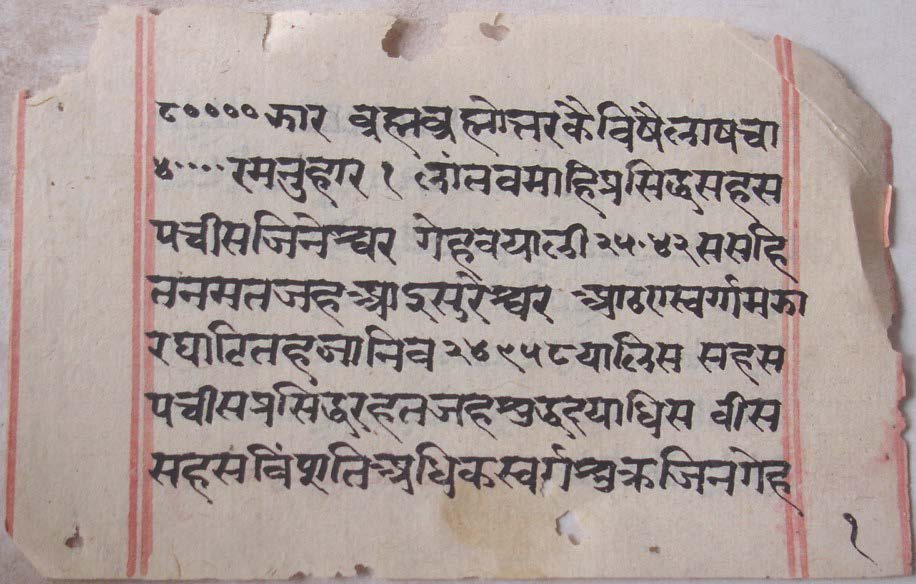 ८०००० फार ब्रह्मब्रह्मोत्तरकैविषैलाषचा
४०००० रमनुहार १ लांतवमाहिप्रसिद्धसहस
पचीसजिनेश्वर गेहवयाली २५०४२ ससहि
तनमतजहआऽसुरेश्वर आठास्वर्गमफा
रघाटितहजानिव २४९५८ यालिस सहस
पचीसप्रसिद्धरहतजहशुद्धदयाधिस वीस
सहसविंशतिअधिकस्वर्गशुक्रजिनगेह
१